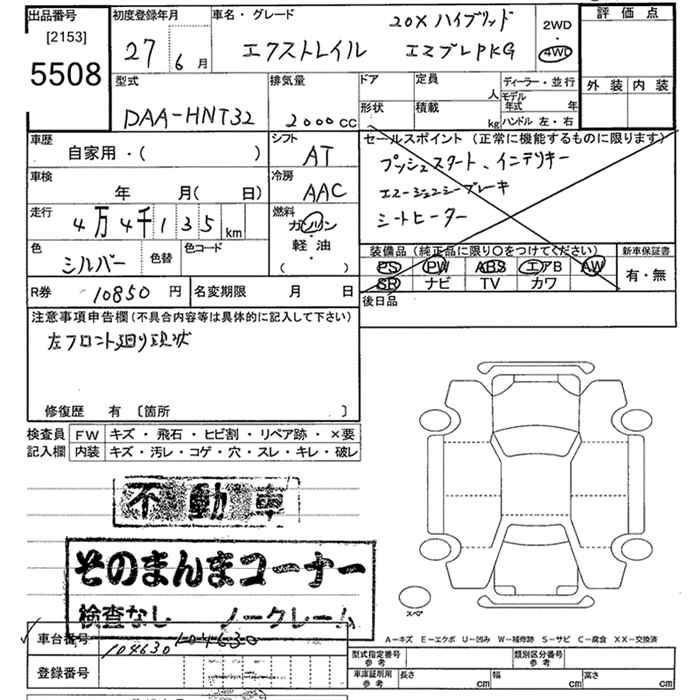 出品番号
[2153]
5508
初度登録年月
27 6月
車名・グレード
20X ハイブリッド
エクストレイル エマブレPKG
2WD
・
4WD
評価点
外装 内装
型式
DAA-HNT32
排気量
2000cc
ドア
形状
定員
人
積載
kg
ディーラー・並行
モデル年式 年
ハンドル 左・右
車歴
自家用・( )
シフト
AT
車検
年 月( 日)
冷房
AAC
走行
4万4千135km
燃料
ガソリン
・
軽油
( )
色
シルバー
色替
色コード
R券 10850円
名変期限 月 日
セールスポイント(正常に機能するものに限ります)
プッシュスタート、インテリキー
エマージェンシーブレーキ
シートヒーター
装備品(純正品に限り○をつけてください)
PS PW ABS エアB AW
SR ナビ TV カワ
新車保証書
有・無
後日品
注意事項申告欄(不具合内容等は具体的に記入して下さい)
左フロント廻り現状
修復歴 有 〔箇所 〕
検査員記入欄
FW キズ・飛石・ヒビ割・リペア跡・×要
内装 キズ・汚レ・コゲ・穴・スレ・キレ・破レ
不動車
そのまんまコーナー
検査なし ノークレーム
スペア
車台番号
104630 104630
登録番号
A-キズ E-エクボ U-凹み W-補修跡 S-サビ C-腐食 XX-交換済
型式指定番号
参考
類別区分番号
参考
車庫証明用
参考
長さ cm 幅 cm 高さ cm